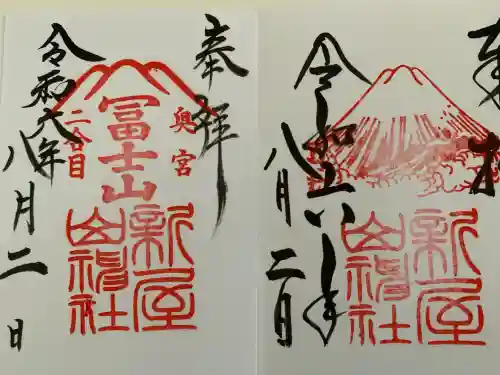 奉拝
奥宮
冨士山
二合目
新屋
山神社
令和六年
八月二日
令和六年
八月二日
新屋
山神社